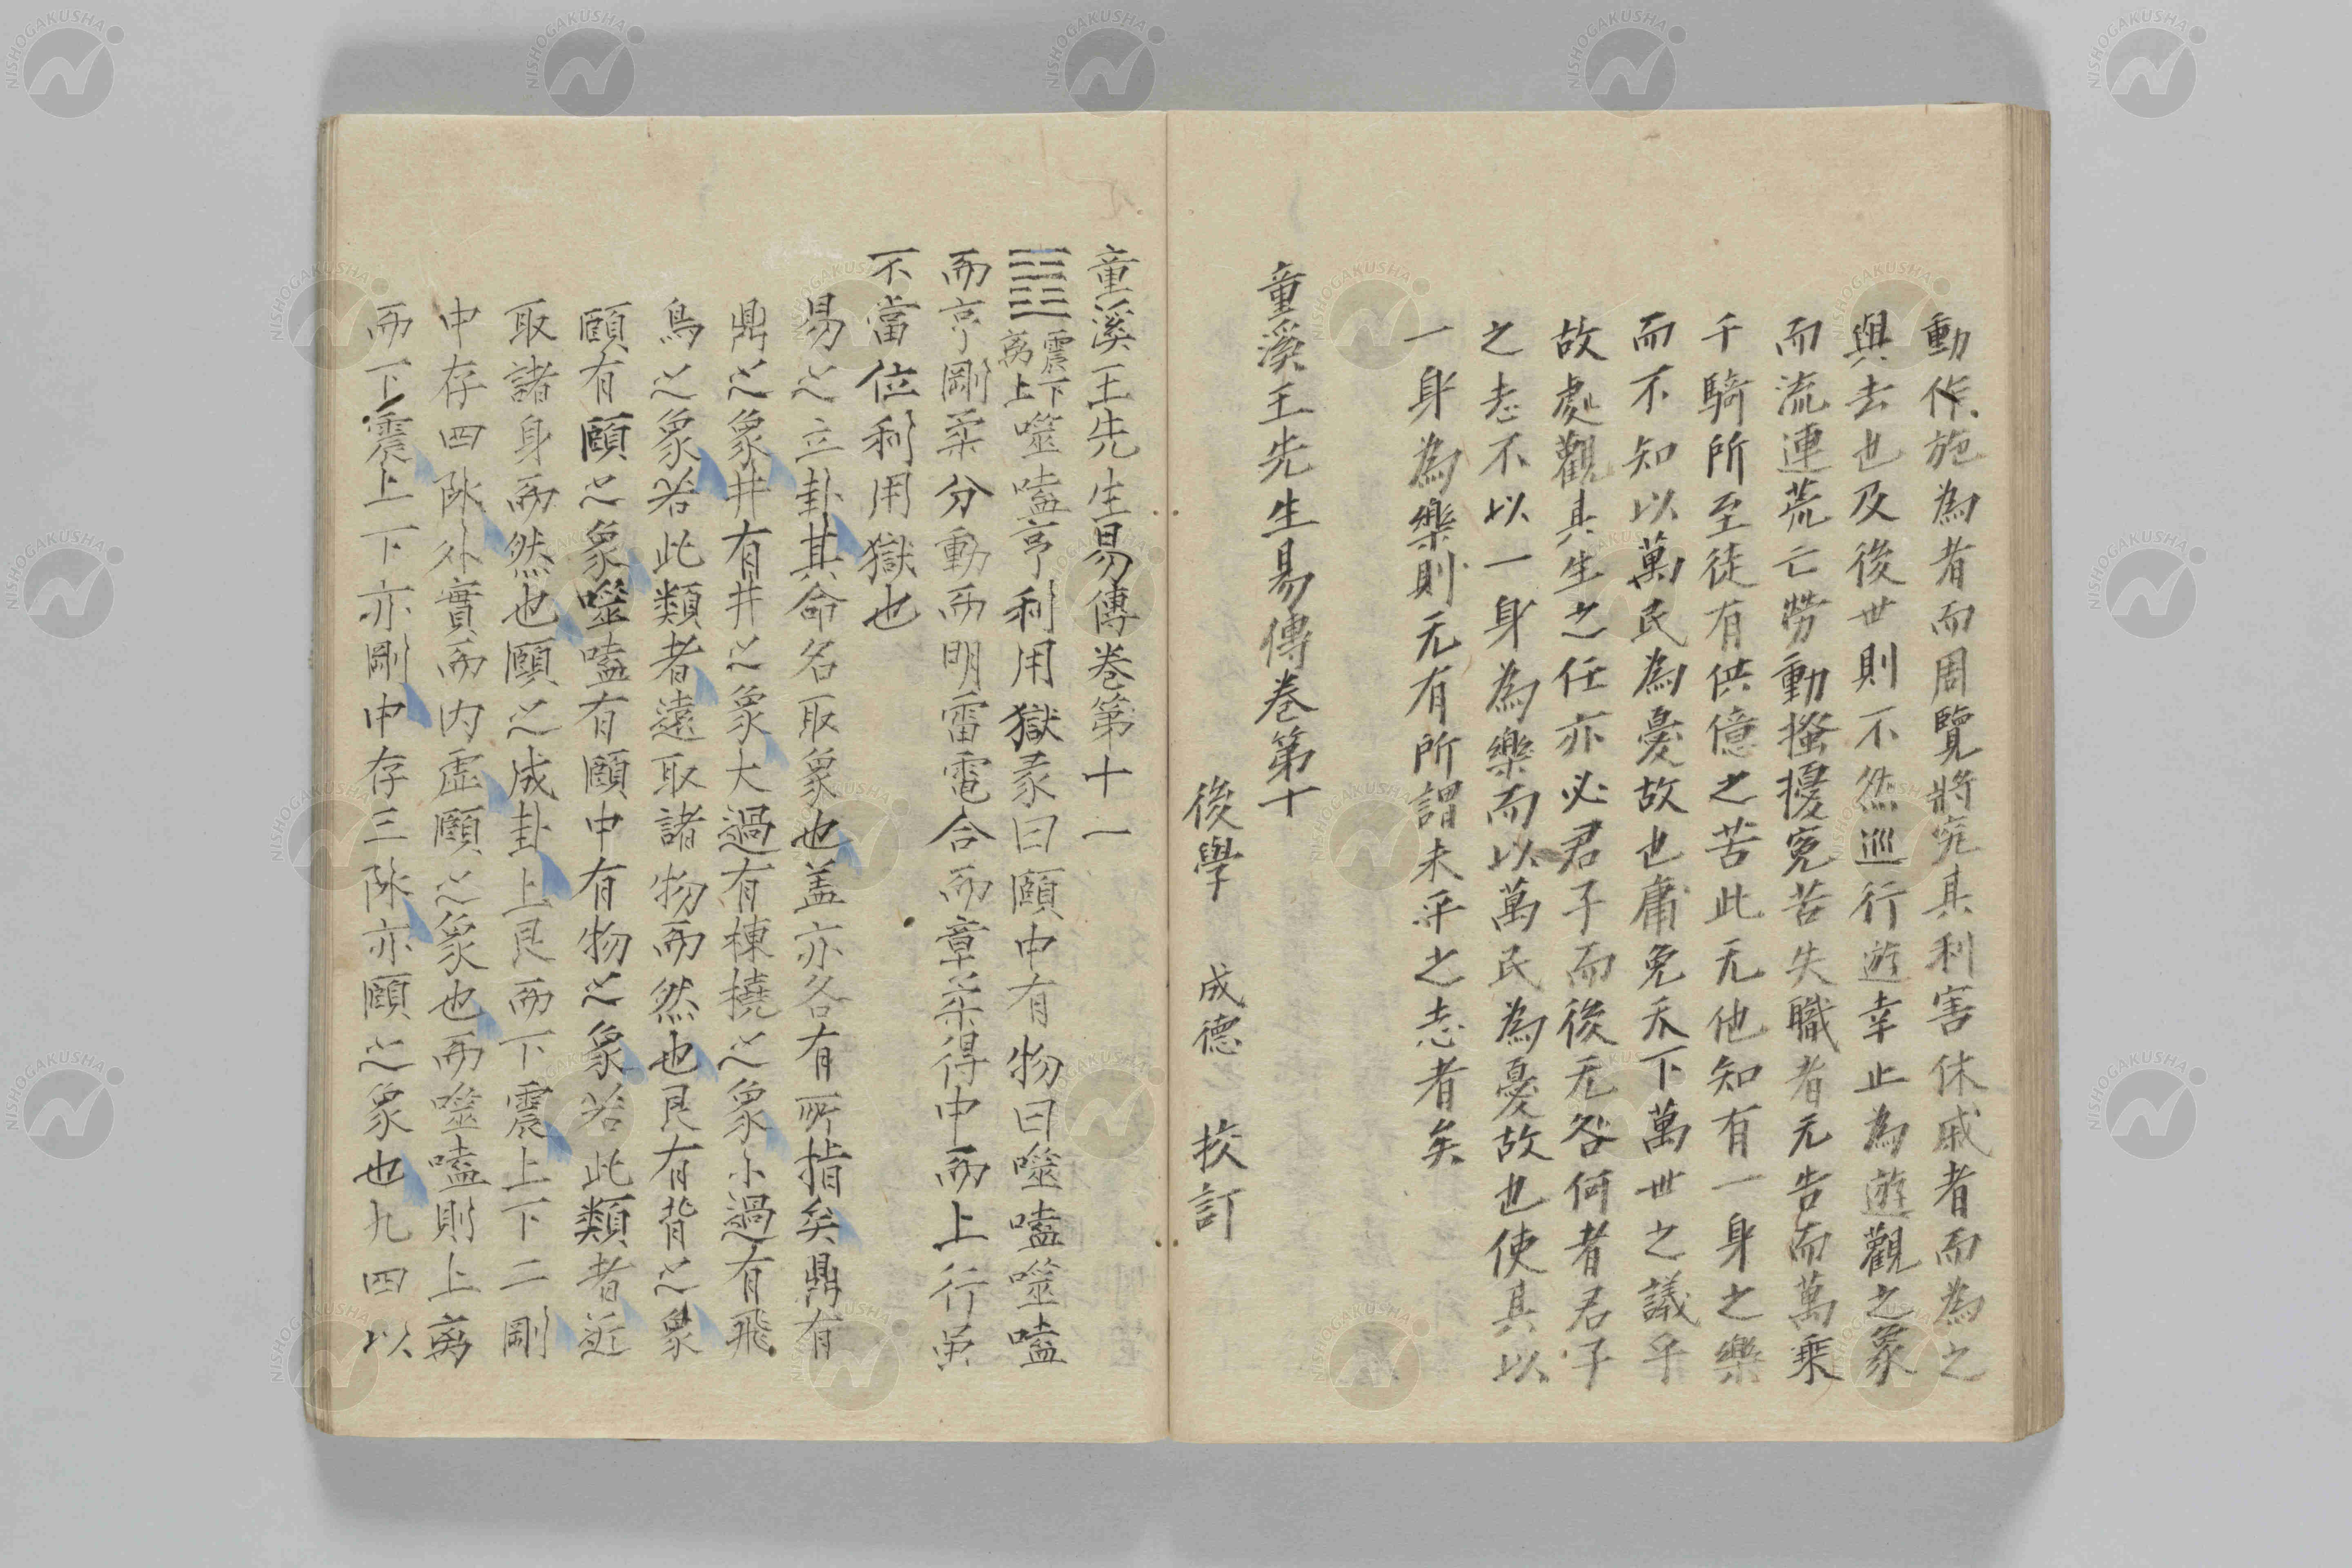 動作施為者而周覽將究其利害休戚者而為之
與去也及後世則不然巡行遊幸止為遊觀之象
而流連荒亡勞動搔擾寃苦失職者无告而萬乘
千騎所至徒有供億之苦此无他知有一身之樂
而不知以萬民為憂故也庸免天下萬世之議乎
故處觀其生之任亦必君子而後无咎何者君子
之志不以一身為樂而以萬民為憂故也使其以
一身為樂則无有所謂未平之志者矣
童溪王先生易傳卷第十
後學 成德 挍訂
童溪王先生易傳卷第十一
䷔震下离上噬嗑亨利用獄彖曰頤中有物曰噬嗑噬嗑
而亨剛柔分動而明雷電合而章柔得中而上行虽
不當位利用獄也
易之立卦其命名取象也盖亦各有所指矣鼎有
鼎之象井有井之象大過有棟橈之象小過有飛
鳥之象若此類者遠取諸物而然也艮有背之象
頤有頤之象噬嗑有頤中有物之象若此類者近
取諸身而然也頤之成卦上艮而下震上下二剛
中存四阴外實而内虛頤之象也而噬嗑則上离
而下震上下亦剛中存三阴亦頤之象也九四以
NISHOGAKUSHA